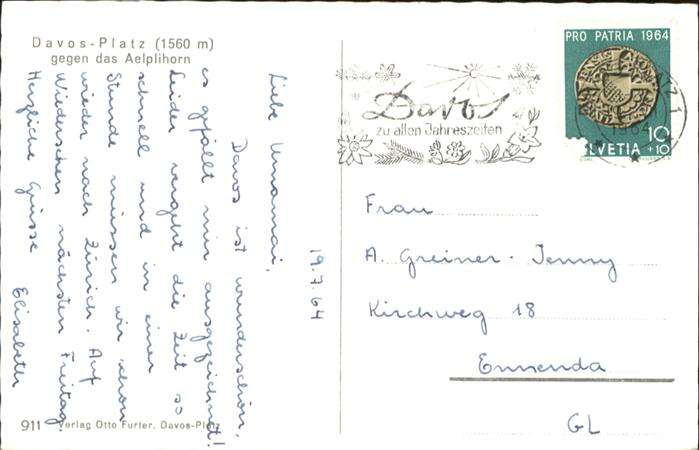 Davos-Platz (1560 m)
gegen das Aelplihorn
19.7.64
Liebe
Davos ist wunderschön,
es gefällt mir ausgezeichnet!
Leider vergeht die Zeit so
schnell und in einer
Stunde müssen wir schon
wieder nach Zürich. Auf
Wiedersehen nächsten Freitag.
Herzliche Grüsse
Elisabeth
911 Verlag Otto Furter, Davos-Platz
Davos
zu allen Jahreszeiten
PRO PATRIA 1964
10
HELVETIA +10
Frau
A. Greiner-Jenny
Kirchweg 18
Ennenda
GL